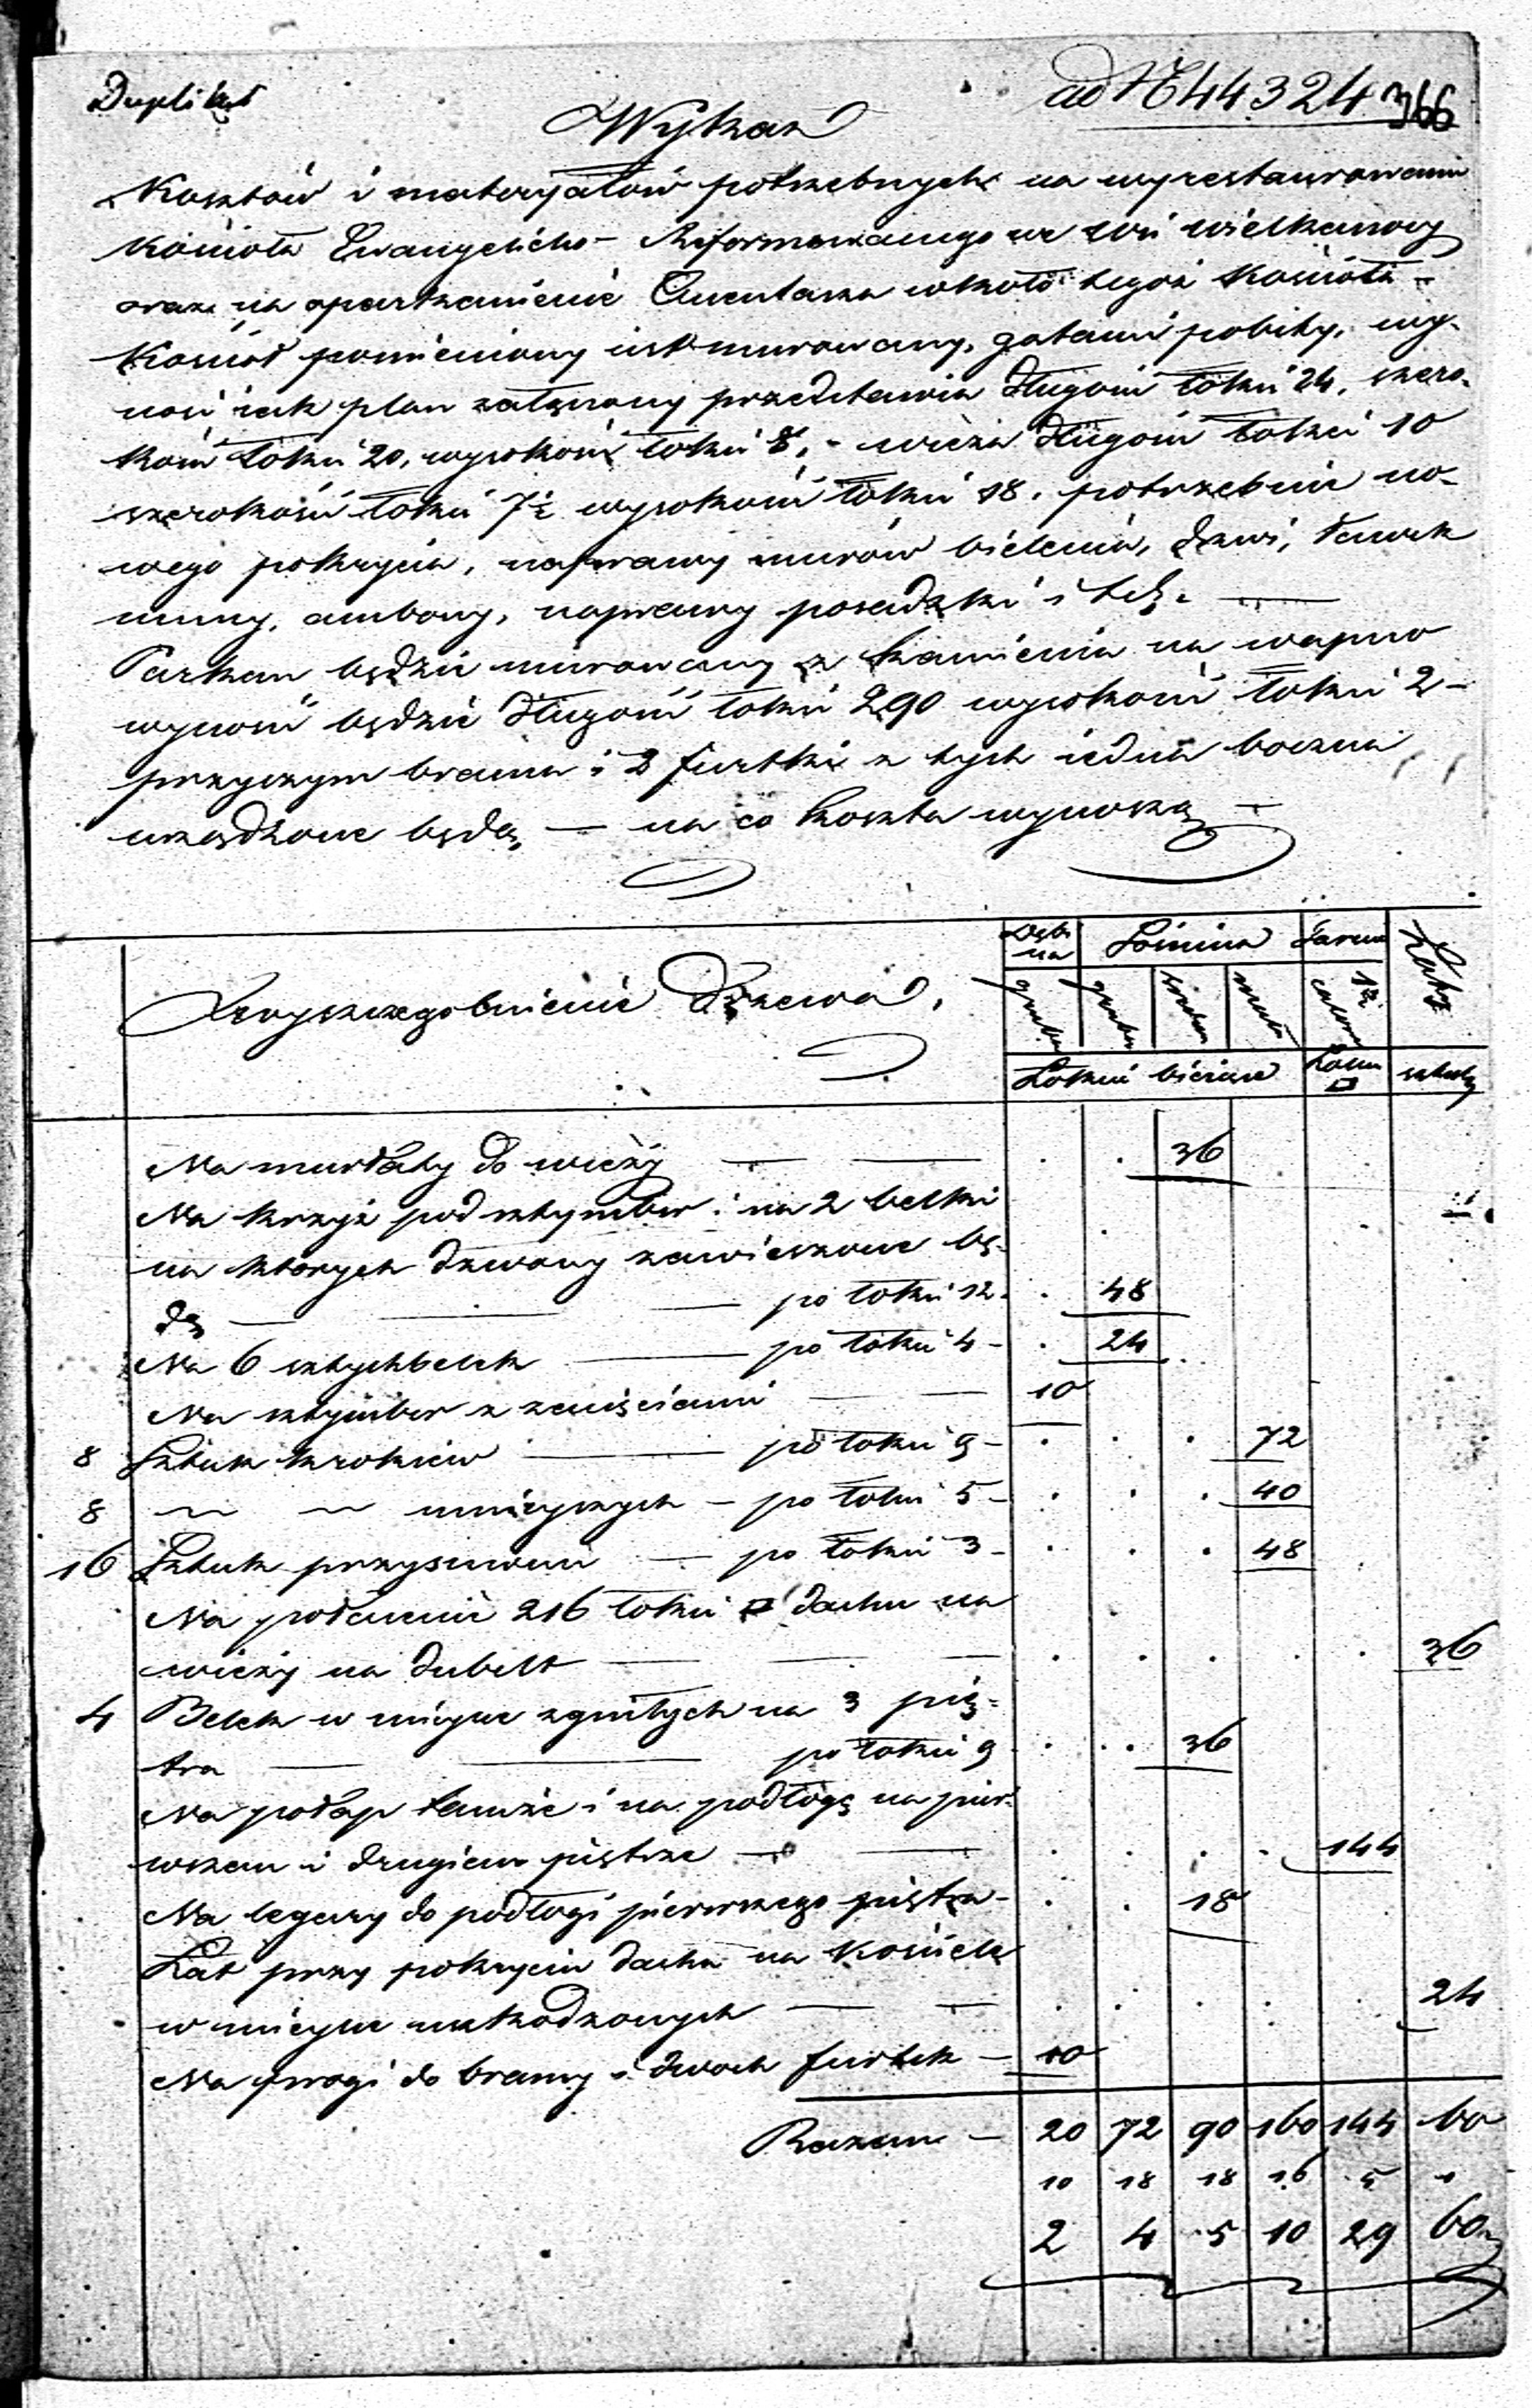 Duplikat
ad N 44324 366
Wykaz
Kosztów i materyałów potrzebnych na wyrestaurowanie
Kościoła Ewangelicko-Reformowanego we wsi Wielkanocy
oraz na oparkanienie Cmentarza wkoło tegoż Kościoła -
Kościół pomieniony iest murowany, gątami pobity, wy-
nosi iak plan załączony przedstawia długości łokci 24, szero-
kości łokci 20, wysokości łokci 8, - wieża długości łokci 10
szerokości łokci 7½ wysokości łokci 18. potrzebuie no-
wego pokrycia, naprawy murów bielenia, drzwi, ławek
mensy, ambony, naprawy posadzki i t. d. —
Parkan będzie murowany z kamienia na wapno
wynosić będzie długości łokci 290 wysokości łokci 2 -
przyczym brama i 2 furtki z tych iedna boczna
urządzone będą, — na co koszta wynoszą —
Wyszczegolnienie Drzewa.
Dębi-
na
Sośnina
Tarcic
Łaty
gruba
gruba
średnia
mała
calowe
1½
Łokci bieżące
Łokci □
sztuky
Na murłaty do wieży — — 36
Na krzyż pod sztymber i na 2 belki
na ktorych dzwony zawieszone bę-
dą — — — po łokci 12. 48
Na 6 sztychbelek — po łokci 4 - 24
Na sztymber z zawisciami — — 10
8 Sztuk krokiew — po łokci 9 - 72
8 〃 〃 mnieyszych - po łokci 5 - 40
16 Sztuk przysuwni — po łokci 3 - 48
Na połacenie 216 łokci □ dachu na
wieży na dubelt — — — 36
4 Belek w mieysce zgniłych na 3 pię-
tra — — po łokci 9 36
Na połap tamże i na podłogę na pier-
wszem i drugiem piętrze — — 144
Na legary do podłogi pierwszego piętra - 18
Łat przy pokryciu dachu na Kościele
w mieysce uszkodzonych — — 24
Na progi do bramy i dwoch furtek - 10
Razem - 20 72 90 160 144 60
10 18 18 16 5 1
2 4 5 10 29 60